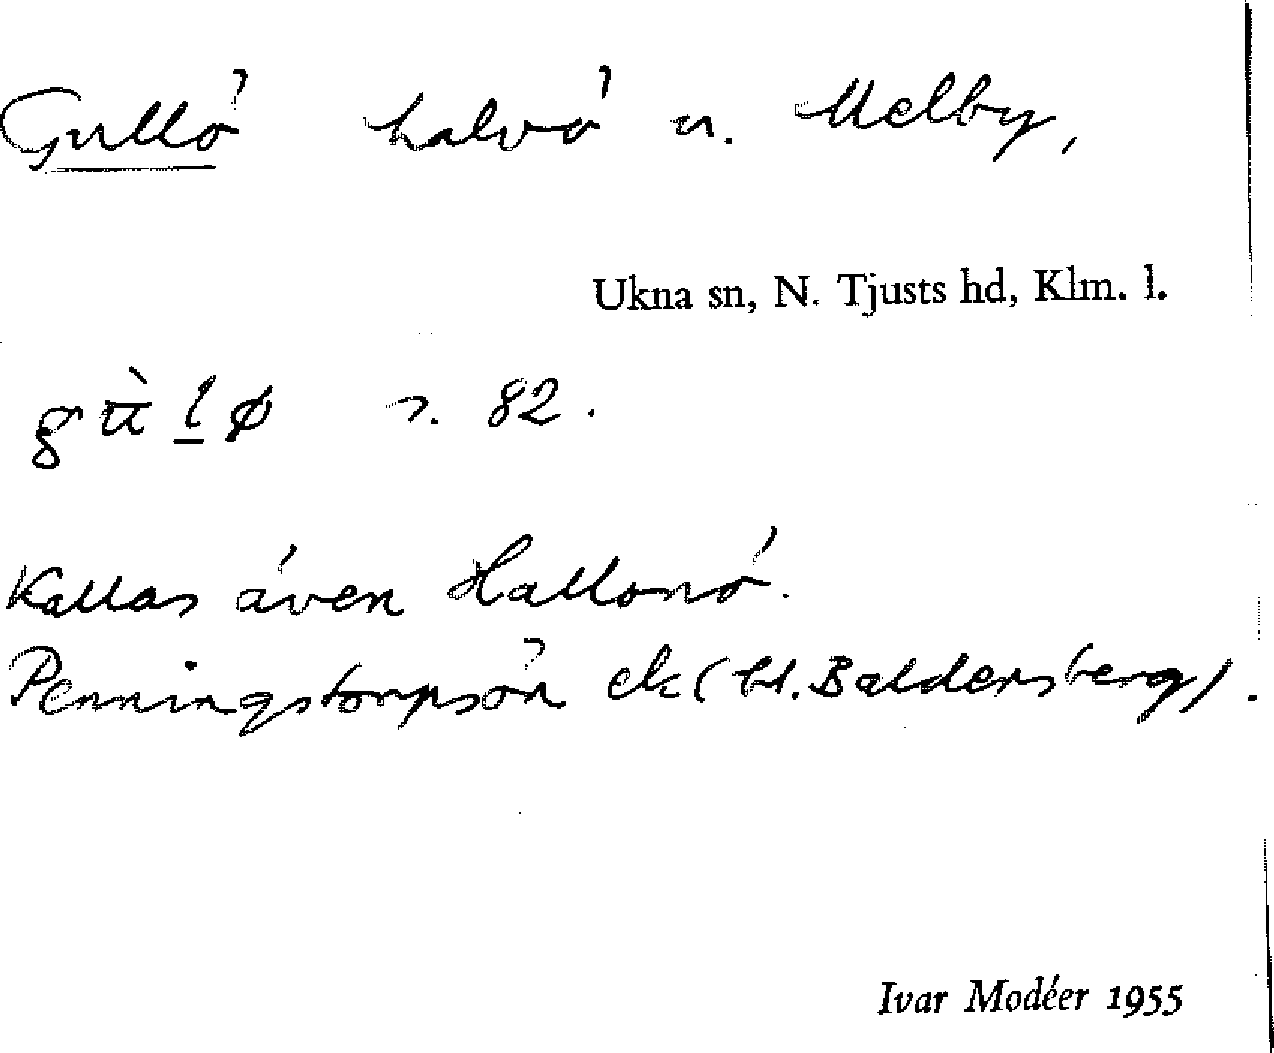 Gullö halvö u. Melby,
Ukna sn, N. Tjusts hd, Klm. l.
s. 82.
Kallas även Hallonö.
Penningstorpsön ek( bl. Baldersberg).
Ivar Modéer 1955